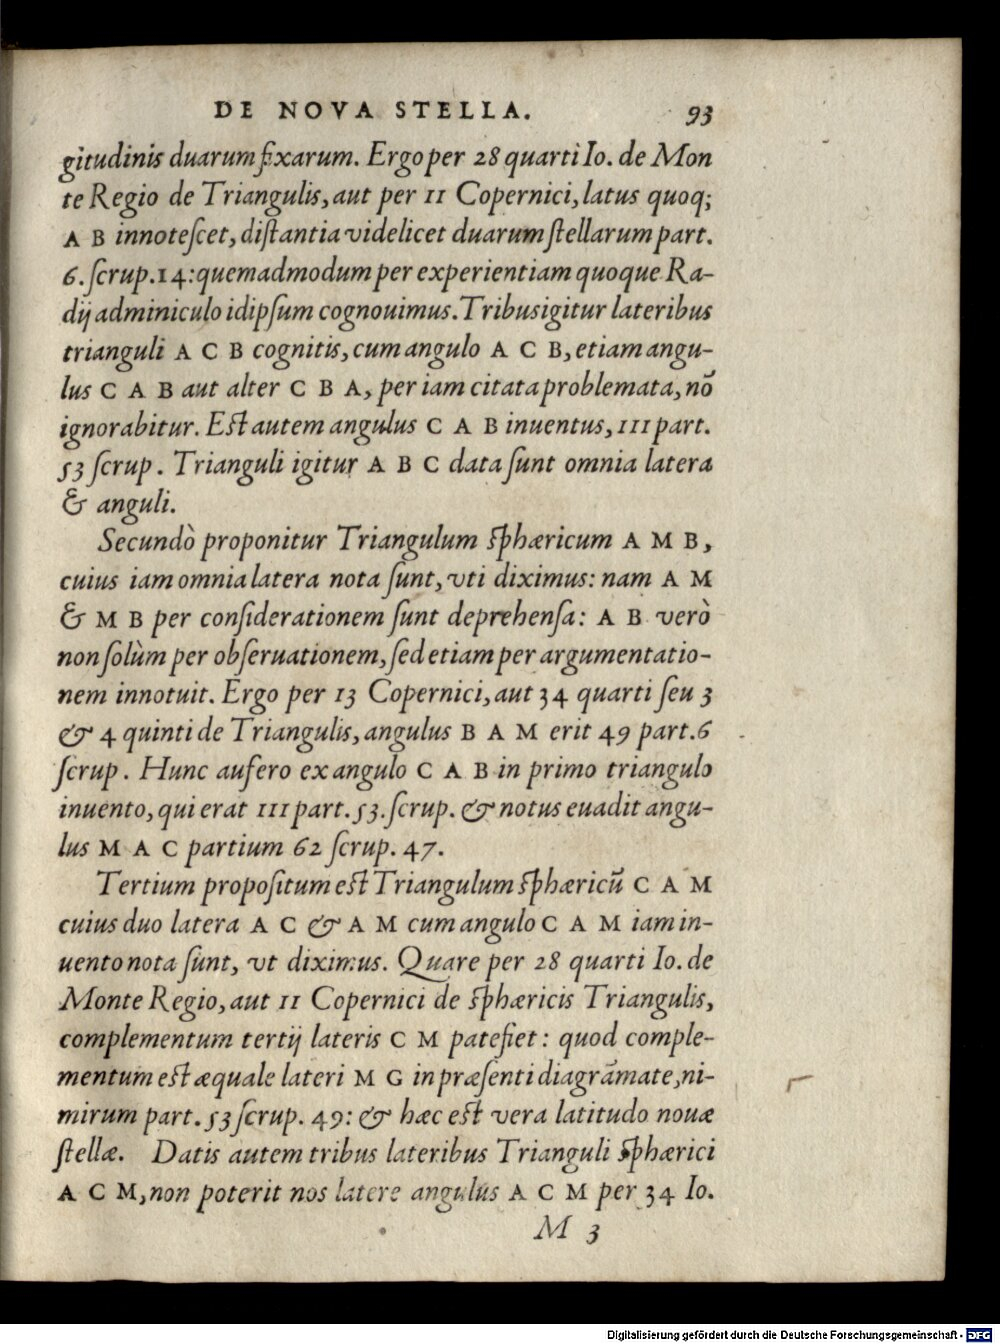 DE NOVA STELLA. 93
gitudinis duarum fixarum. Ergo per 28 quarti Io. de Mon
te Regio de Triangulis, aut per 11 Copernici, latus quoq;
A B innoteſcet, diſtantia videlicet duarum ſtellarum part.
6. ſcrup. 14: quemadmodum per experientiam quoque Ra-
dij adminiculo idipſum cognouimus. Tribus igitur lateribus
trianguli A C B cognitis, cum angulo A C B, etiam angu-
lus C A B aut alter C B A, per iam citata problemata, nõ
ignorabitur. Eſt autem angulus C A B inuentus, 111 part.
53 ſcrup. Trianguli igitur A B C data ſunt omnia latera
& anguli.
Secundò proponitur Triangulum ſphæricum A M B,
cuius iam omnia latera nota ſunt, vti diximus: nam A M
& M B per conſiderationem ſunt deprehenſa: A B verò
non ſolùm per obſeruationem, ſed etiam per argumentatio-
nem innotuit. Ergo per 13 Copernici, aut 34 quarti ſeu 3
& 4 quinti de Triangulis, angulus B A M erit 49 part. 6
ſcrup. Hunc aufero ex angulo C A B in primo triangulo
inuento, qui erat 111 part. 53. ſcrup. & notus euadit angu-
lus M A C partium 62 ſcrup. 47.
Tertium propoſitum eſt Triangulum ſphæricũ C A M
cuius duo latera A C & A M cum angulo C A M iam in-
uento nota ſunt, vt diximus. Quare per 28 quarti Io. de
Monte Regio, aut 11 Copernici de ſphæricis Triangulis,
complementum tertij lateris C M patefiet: quod comple-
mentum eſt æquale lateri M G in præſenti diagrãmate, ni-
mirum part. 53 ſcrup. 49: & hæc eſt vera latitudo nouæ
ſtellæ. Datis autem tribus lateribus Trianguli ſphærici
A C M, non poterit nos latere angulus A C M per 34 Io.
M 3
Digitalisierung gefördert durch die Deutsche Forschungsgemeinschaft - DFG